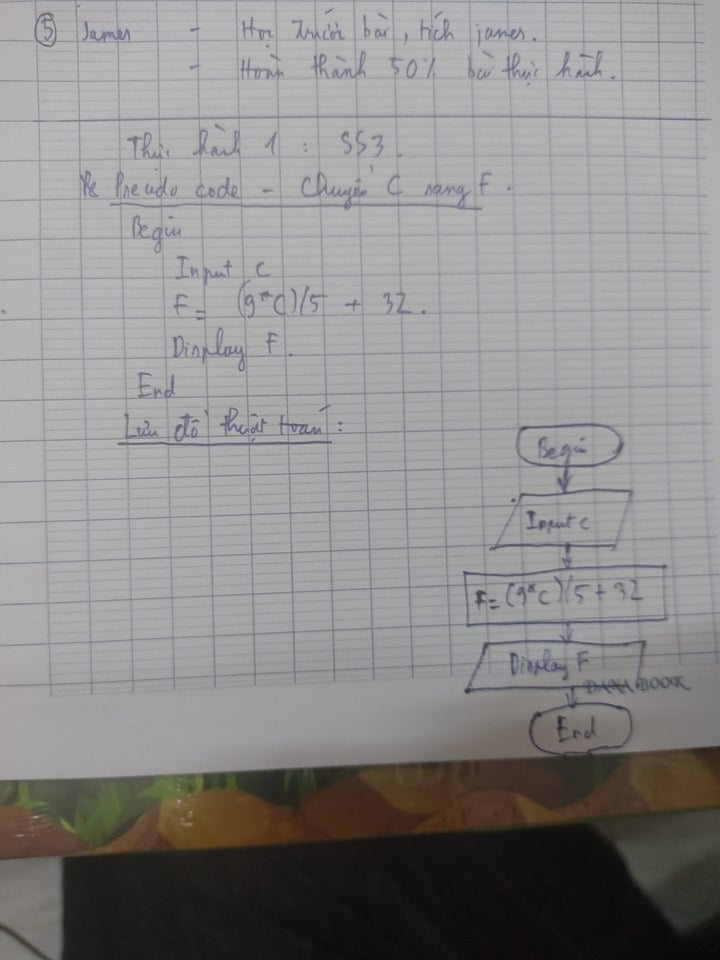 ⑤ James - Học trước bài, tích james.
- Hoàn thành 50% bài thực hành.
Thực hành 1 : SS3.
Pseudo code - Chuyển C sang F.
Begin
Input C
F = (9*C)/5 + 32.
Display F.
End
Lưu đồ thuật toán :
Begin
Input C
F = (9*C)/5 + 32
Display F
BOOK
End